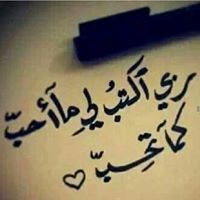 ربي اكتبُ لي ما أحبّ
كما تحبّ ♡